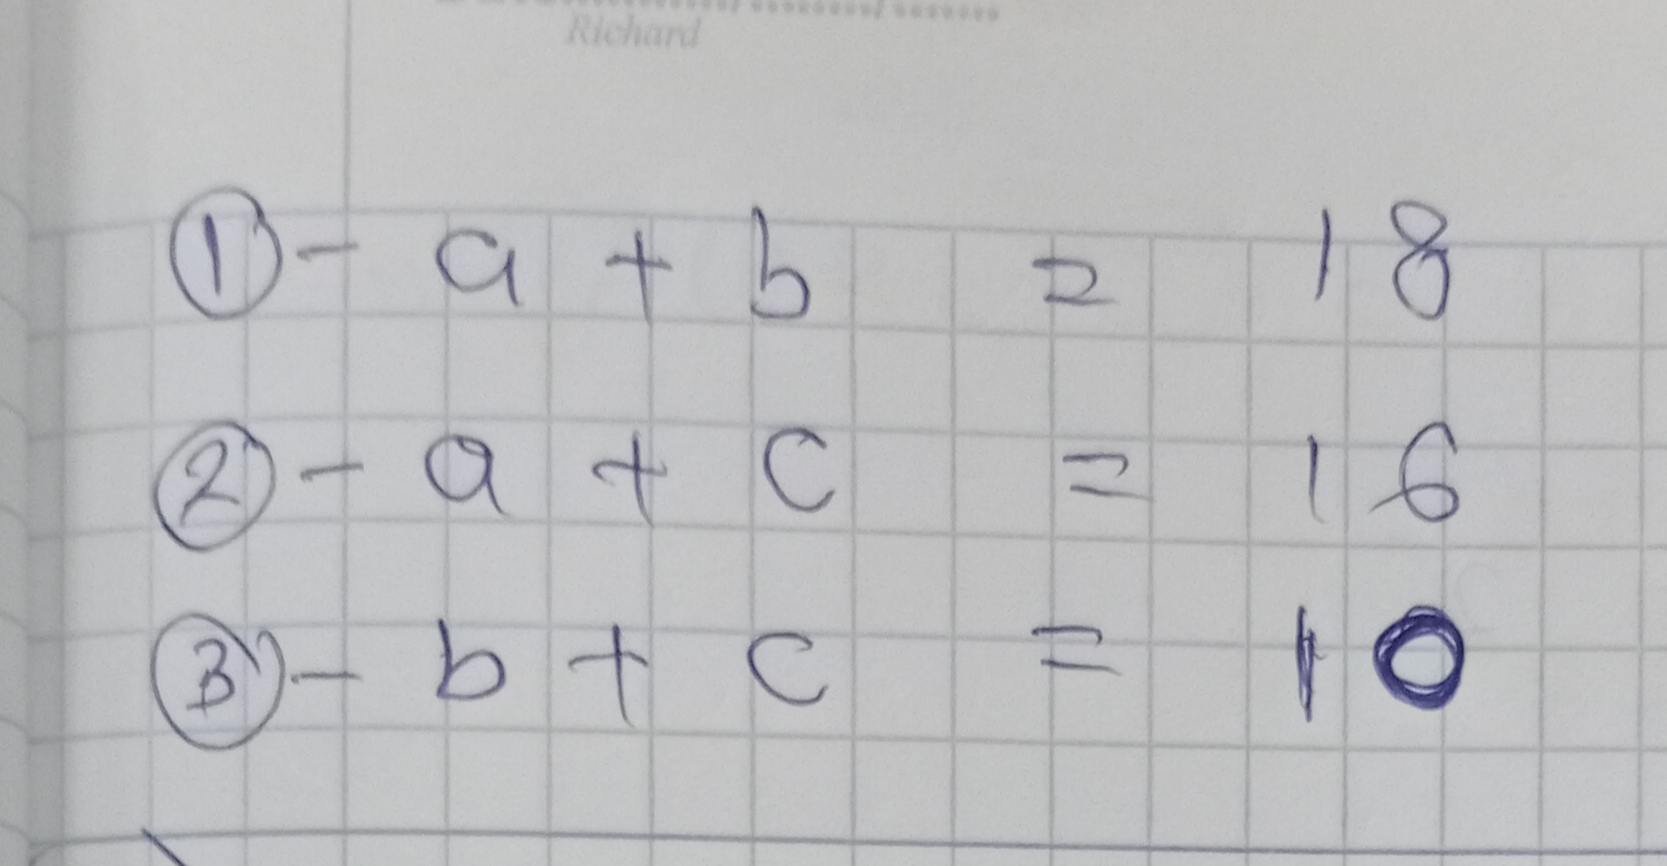 Richard
① - a + b = 18
② - a + c = 16
③ - b + c = 10